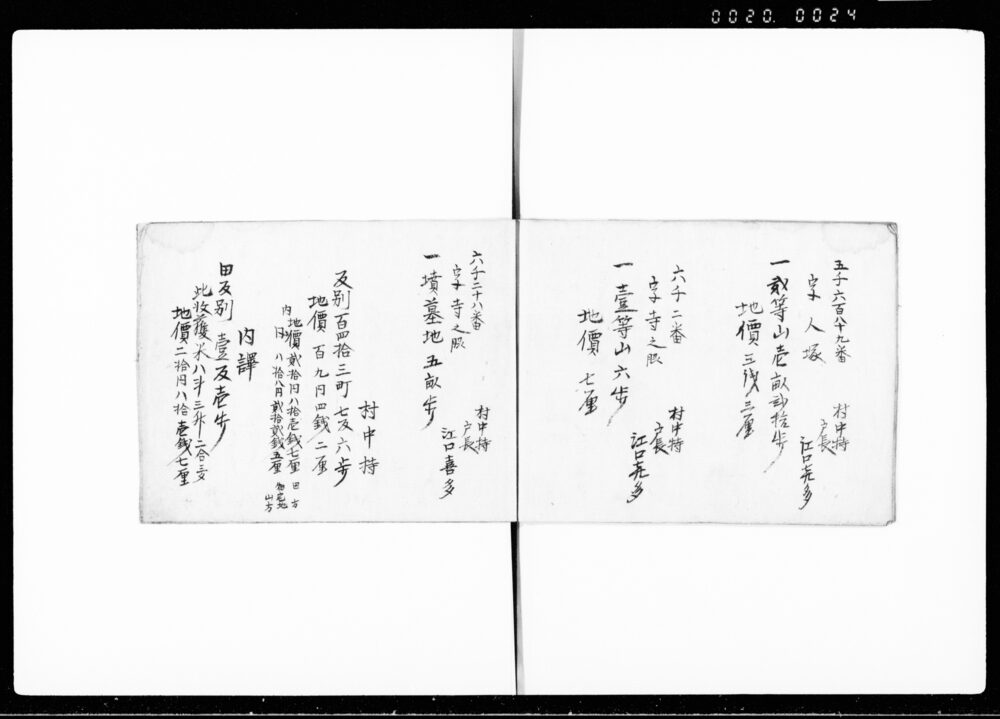 0020. 0024
五千六百八十九番
字人塚
村中持
戸長
江口㐂多
一 貳等山壱畝弐拾歩
地價 三銭三厘
六千二番
字寺之股
村中持
戸長
江口㐂多
一 壹等山六歩
地價 七厘
六千二十八番
字寺之股
村中持
戸長
江口喜多
一 墳墓地五畝歩
村中持
反別百四拾三町七反六歩
地價 百九円四銭二厘
内 地價貳拾円八拾壱銭七厘 田方
同 八拾八円貳拾貳銭五厘 畑宅地山方
内譯
田反別 壹反壱歩
此收穫米八斗三升二合
地價二拾円八拾壱銭七厘